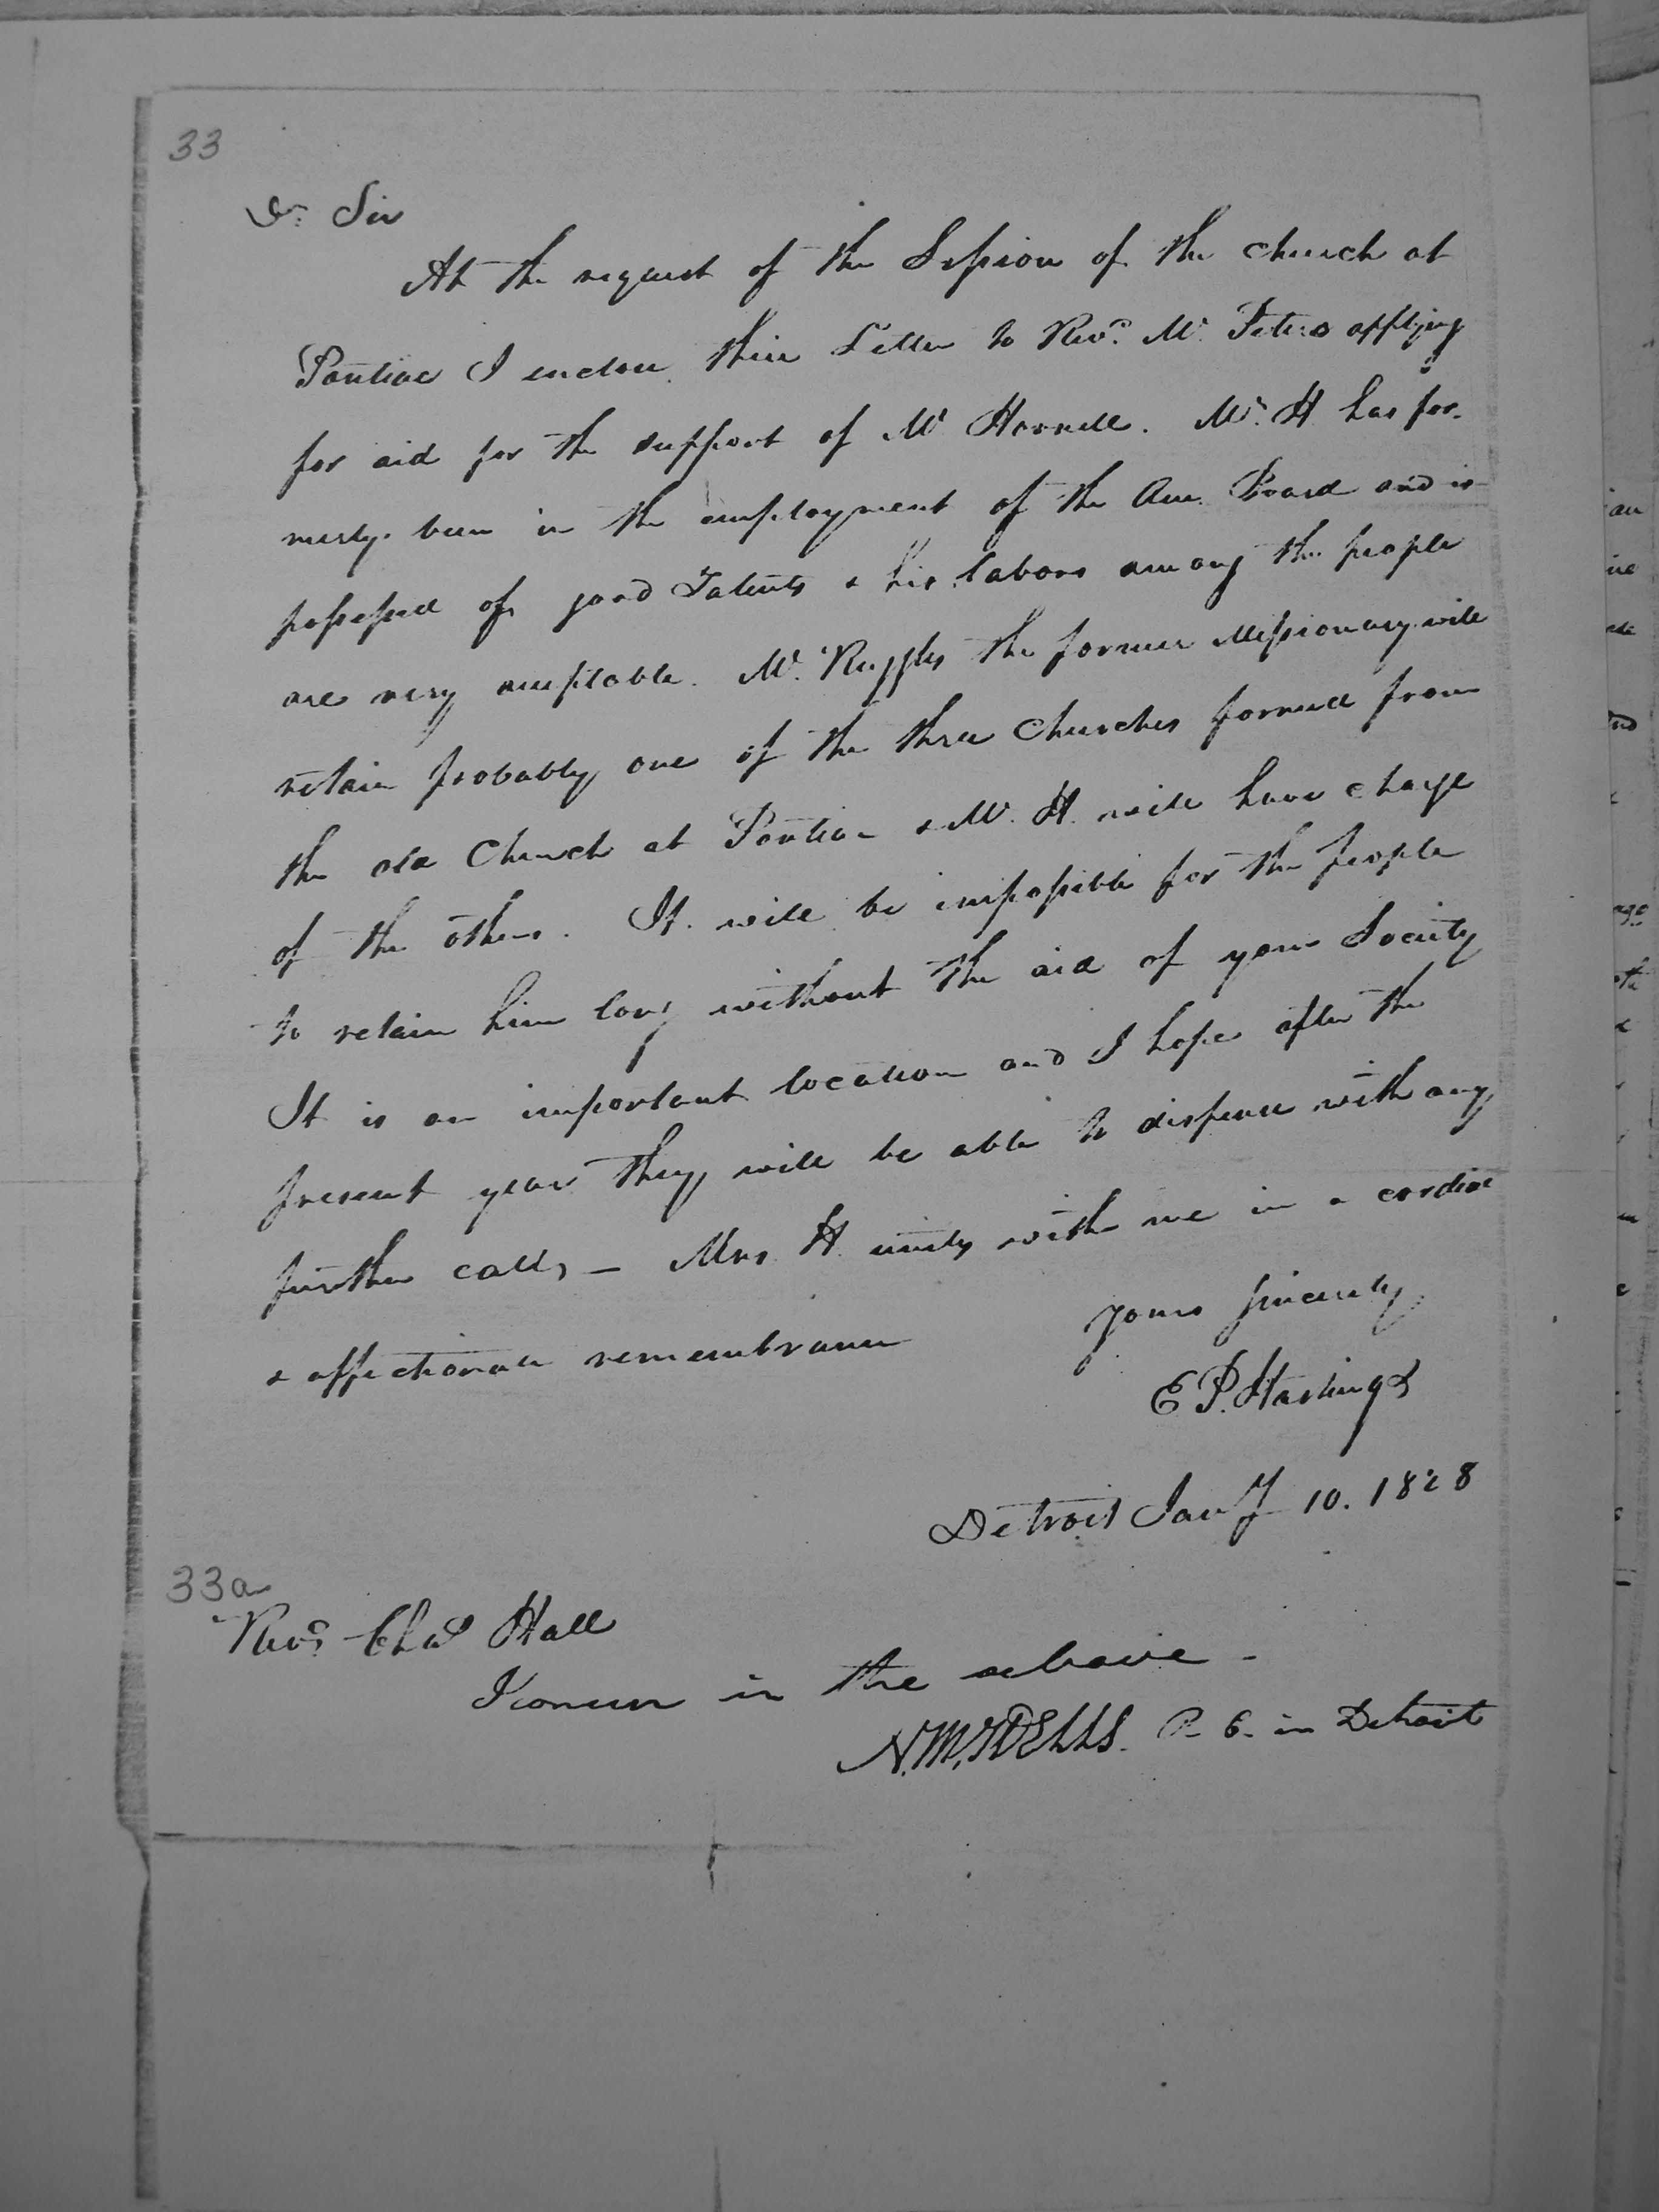 33
Dr. Sir
At the request of the Session of the church at
Pontiac I enclose their Letter to Revd. Mr. Peters applying
for aid for the support of Mr Hornell. Mr. H has for-
merly been in the employment of the Am. Board and is
possessed of good Talents & his labors among the people
are very acceptable. Mr. Ruggles the former Missionary will
retain probably one of the three Churches formed from
the old Church at Pontiac & Mr. H. will have charge
of the others. It will be impossible for the people
to retain him long without the aid of your Society
It is an important location and I hope after the
present year they will be able to dispense with any
further calls, – Mrs H. unites with me in a cordial
& affectionate remembrance
Yours sincerely
E. P. Hastings
Detroit Jany 10. 1828
33a
Revd. Chas Hall
I concur in the above -
N. M. WELLS. P. C. in Detroit